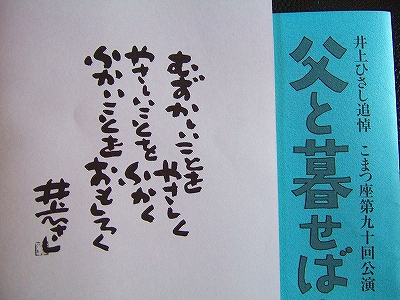 井上ひさし追悼 こまつ座第九十回公演
父と暮せば
むずかしいことを やさしく
やさしいことを ふかく
ふかいことを おもしろく
井上ひさし